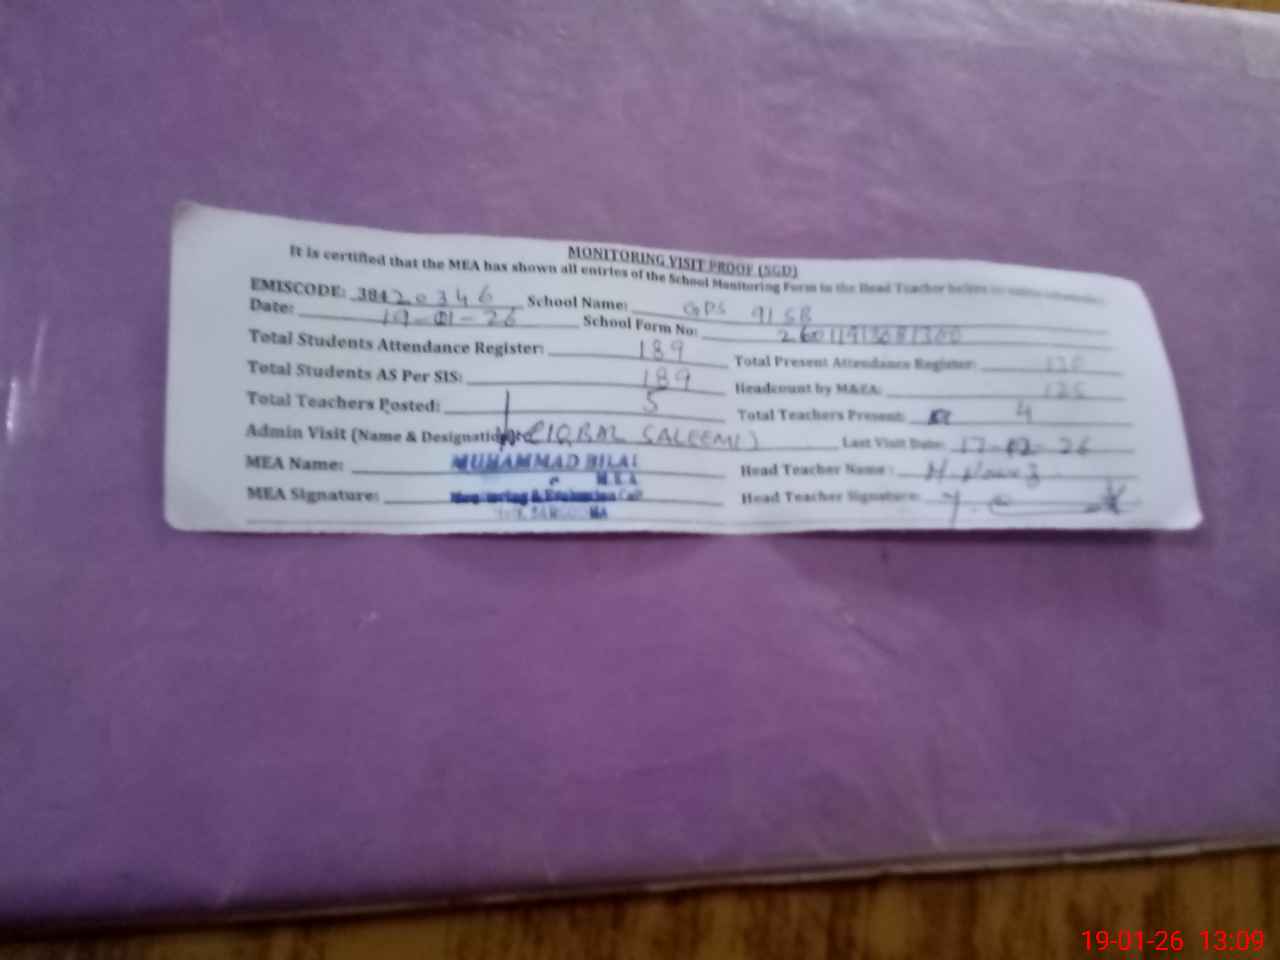 MONITORING VISIT PROOF (SGD)
It is certified that the MEA has shown all entries of the School Monitoring Form to the Head Teacher before
EMISCODE: 38420346 School Name: GPS 91 SB
Date: 19-01-26 School Form No:
Total Students Attendance Register: 189 Total Present Attendance Register:
Total Students AS Per SIS: 189 Headcount by M&EA: 125
Total Teachers Posted: 5 Total Teachers Present: 4
Admin Visit (Name & Designation): (IQBAL SALEEMI) Last Visit Date: 17-02-26
MEA Name: MUHAMMAD BILAL Head Teacher Name: M. Nawaz
M.E.A
MEA Signature: Monitoring & Evaluation Cell Head Teacher Signature:
SARGODHA
19-01-26 13:09